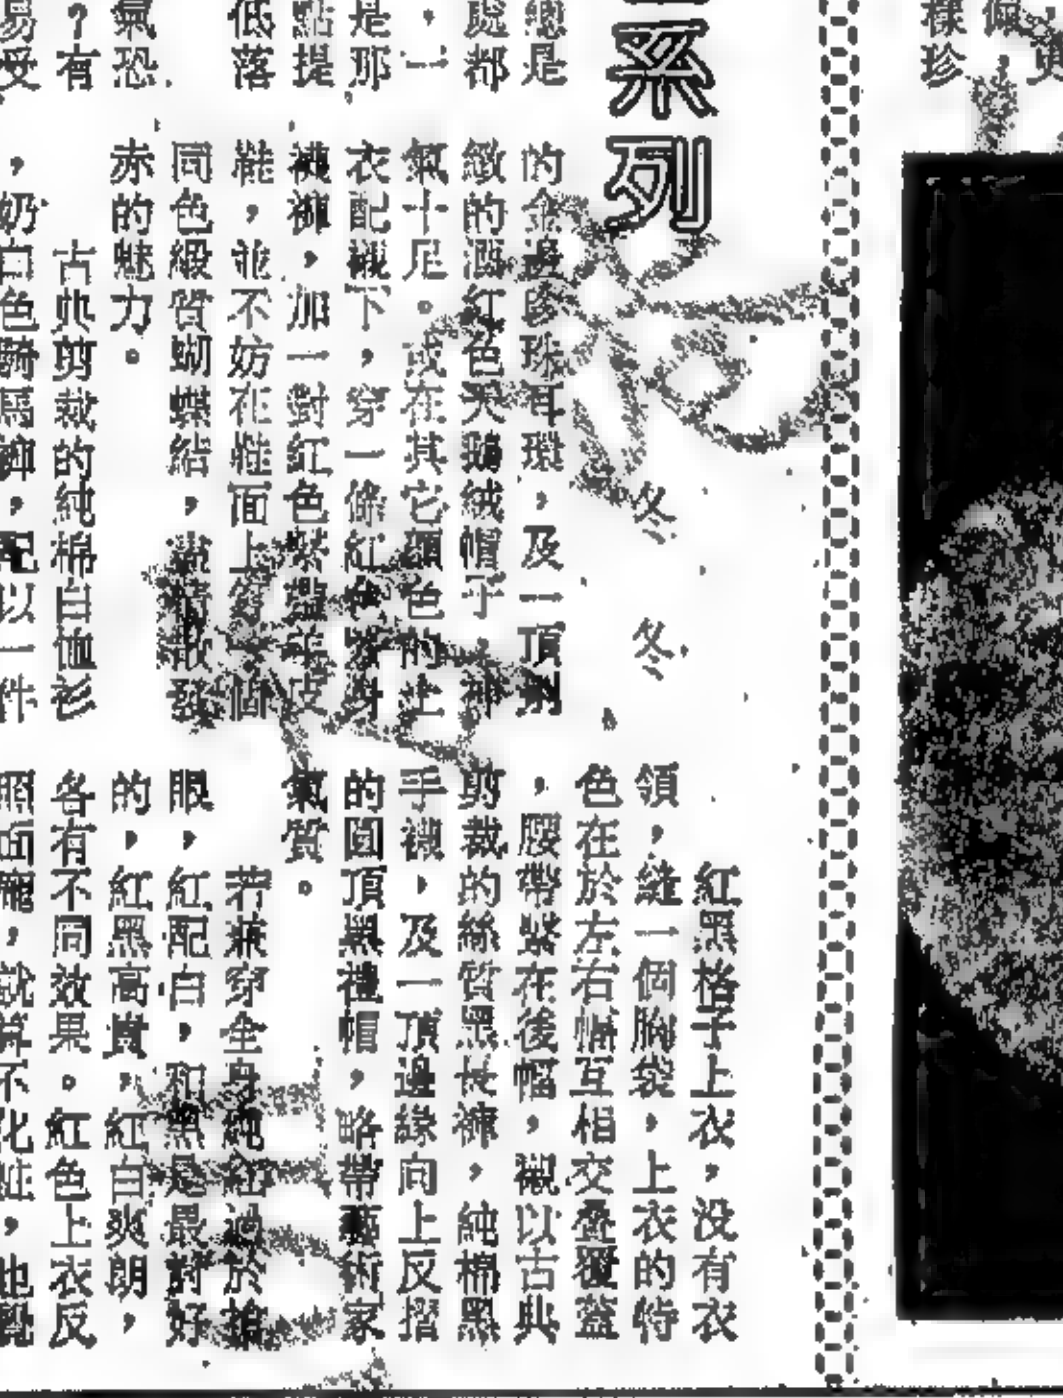 樣珍
系列
冬冬
總是
處都
，一
是那
點提
低落
氣恐
？有
易受
的金邊珍珠耳環，及一頂別
緻的酒紅色天鵝絨帽子，神
氣十足。或在其它顏色的上
衣配襯下，穿一條紅色緊身
襪褲，加一對紅色羊皮
鞋，並不妨在鞋面上穿一個
同色緞質蝴蝶結，盡情散發
赤的魅力。
古典剪裁的純棉白恤衫
，奶白色騎馬褲，配以一件
紅黑格子上衣，没有衣
領，縫一個胸袋，上衣的特
色在於左右幅互相交叠覆蓋
，腰帶繫在後幅，襯以古典
剪裁的絲質黑長褲，純棉黑
手襪，及一頂邊緣向上反摺
的圓頂黑禮帽，略帶藝術家
氣質。
若兼穿全身純紅過於搶
眼，紅配白，和黑是最討好
的，紅黑高貴，紅白爽朗，
各有不同效果。紅色上衣反
照面龐，就算不化妝，也覺